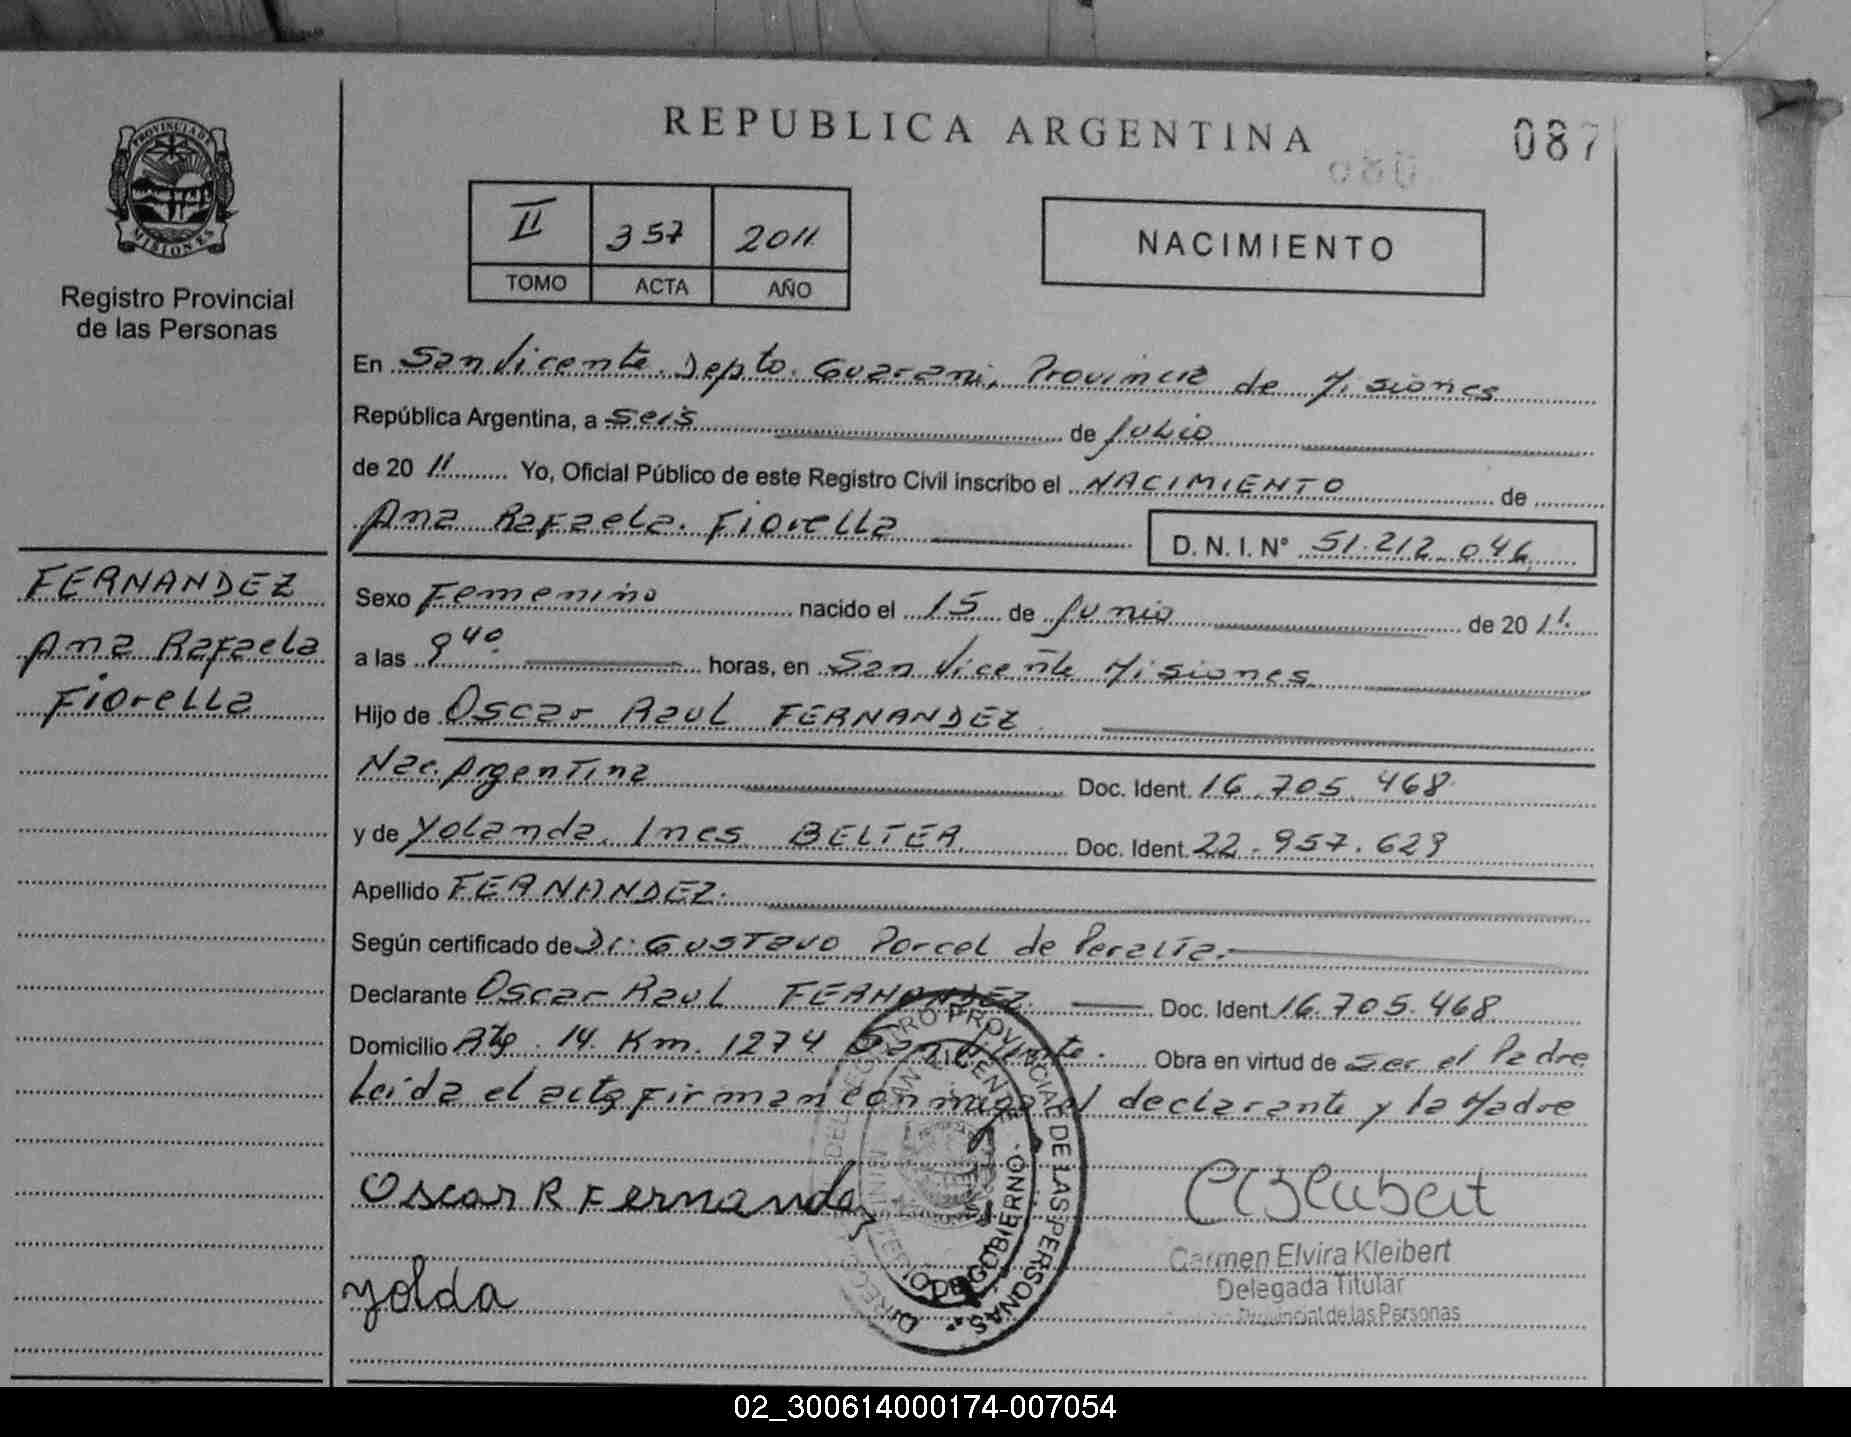 REPUBLICA ARGENTINA
087
080
PROVINCIA DE
MISIONES
Registro Provincial
de las Personas
II 357 2011
TOMO ACTA AÑO
NACIMIENTO
En San Vicente. Depto. Guarani, Provincia de Misiones
República Argentina, a seis de Julio
de 20 11 Yo, Oficial Público de este Registro Civil inscribo el NACIMIENTO de
Ana Rafaela. Fiorella
D. N. I. Nº 51.212.046
FERNANDEZ
Ana Rafaela
Fiorella
Sexo Femenino nacido el 15 de Junio de 20 11.
a las 9 40. horas, en San Vicente Misiones
Hijo de Oscar Raul FERNANDEZ
Nac. Argentina Doc. Ident. 16.705.468
y de Yolanda. Ines BELTER. Doc. Ident. 22.957.629
Apellido FERNANDEZ.
Según certificado de Dr: Gustavo Porcel de Peralta.
Declarante Oscar Raul FERNANDEZ. Doc. Ident. 16.705.468
Domicilio Rta. 14. Km. 1274 San Vicente. Obra en virtud de ser el Padre
Leida el acta firman conmigo el declarante y la Madre
Oscar R Fernandez
Yolda
PROVINCIAL DE LAS PERSONAS
DE GOBIERNO
Carmen Elvira Kleibert
Delegada Titular
Provincial de las Personas
02_300614000174-007054